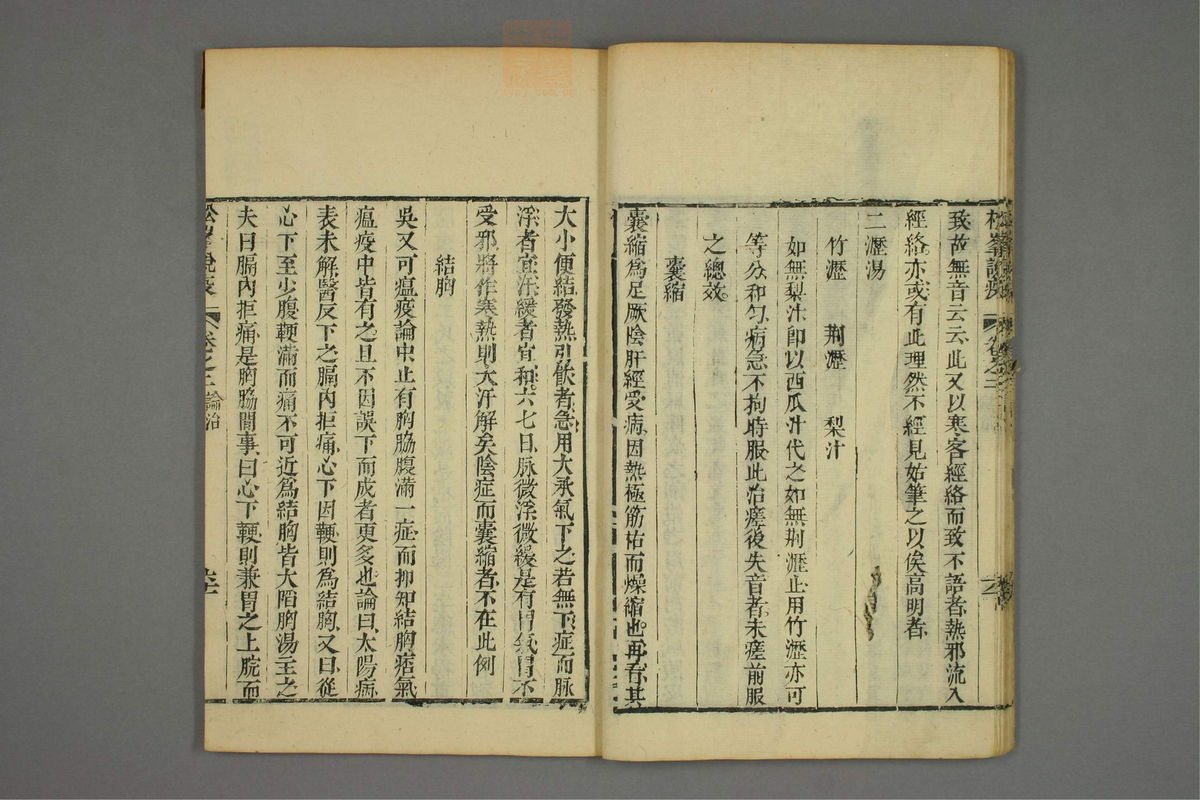 致故無音云云此又以寒客經絡而致不語者熱邪流入
經絡亦或有此理然不經見姑筆之以俟高明者
二瀝湯
竹瀝 荆瀝 梨汁
如無梨汁即以西瓜汁代之如無荆瀝止用竹瀝亦可
等分和勻病急不拘時服此治瘥後失音者未瘥前服
之總效
囊縮
囊縮爲足厥陰肝經受病因熱極筋枯而燥縮也再看其
大小便結發熱引飲者急用大承氣下之若無下症而脉
浮者宜汗緩者宜和六七日脉微浮微緩是有胃氣胃不
受邪將作寒熱則大汗解矣陰症而囊縮者不在此例
結胸
吳又可瘟疫論中止有胸脇腹滿一症而抑知結胸痞氣
瘟疫中皆有之且不因誤下而成者更多也論曰太陽病
表未解醫反下之膈內拒痛心下因鞕則爲結胸又曰從
心下至少腹鞕滿而痛不可近爲結胸皆大陷胸湯主之
夫曰膈內拒痛是胸脇間事曰心下鞕則兼胃之上脘而
松峯說疫 卷之二 論治